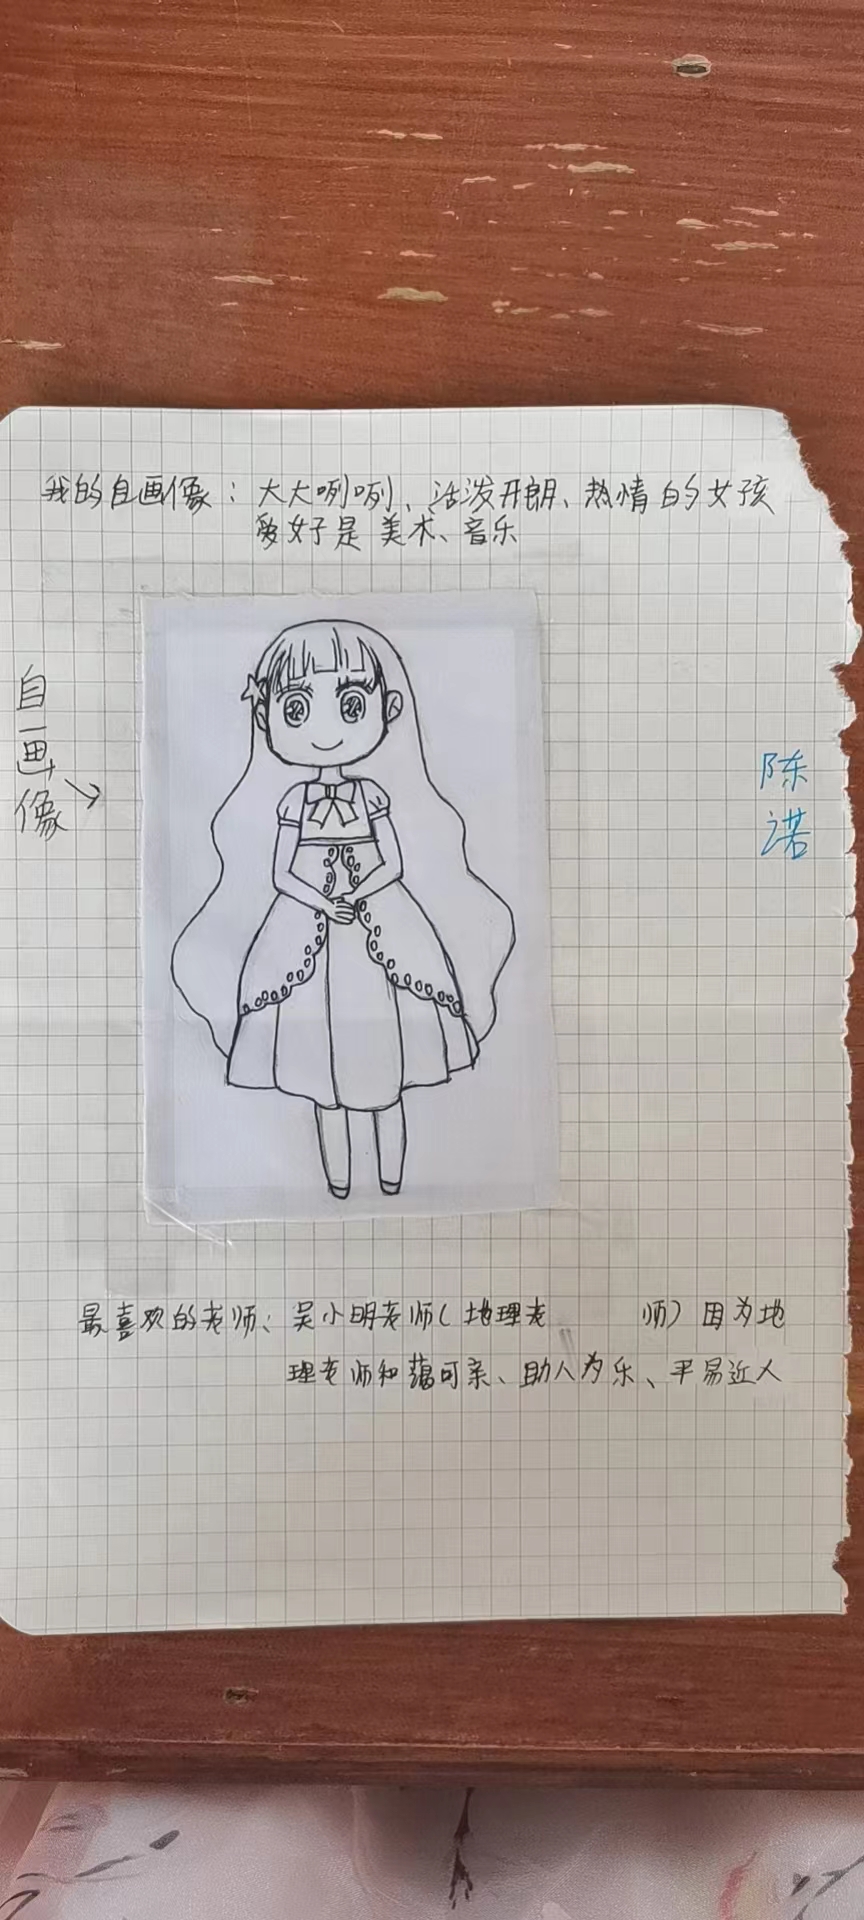 我的自画像：大大咧咧、活泼开朗、热情的女孩
爱好是美术、音乐
自画像
陈诺
最喜欢的老师：吴小明老师（地理老师）因为地
理老师和蔼可亲、助人为乐、平易近人